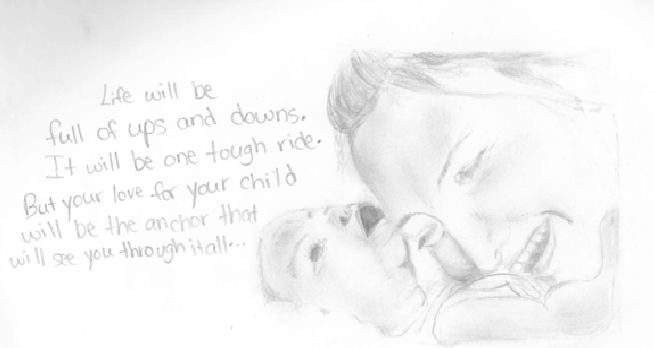 Life will be
full of ups and downs.
It will be one tough ride.
But your love for your child
will be the anchor that
will see you through it all...